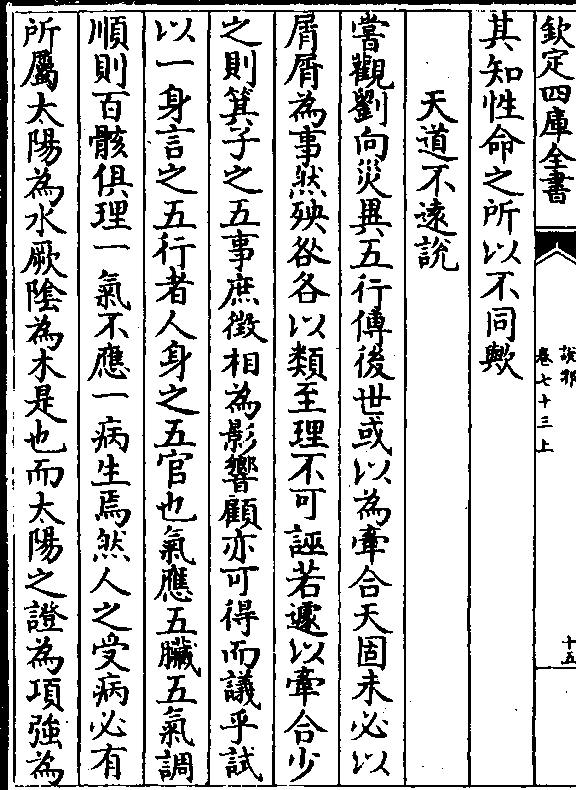 欽定四庫全書
說郛
卷七十三上
十五
其知性命之所以不同歟
天道不遠說
嘗觀劉向災異五行傳後世或以為牽合天固未必以
屑屑為事然殃咎各以類至理不可誣若遽以牽合少
之則箕子之五事庶徵相為影響顧亦可得而議乎試
以一身言之五行者人身之五官也氣應五臟五氣調
順則百骸俱理一氣不應一病生焉然人之受病必有
所屬太陽為水厥陰為木是也而太陽之證為項強為